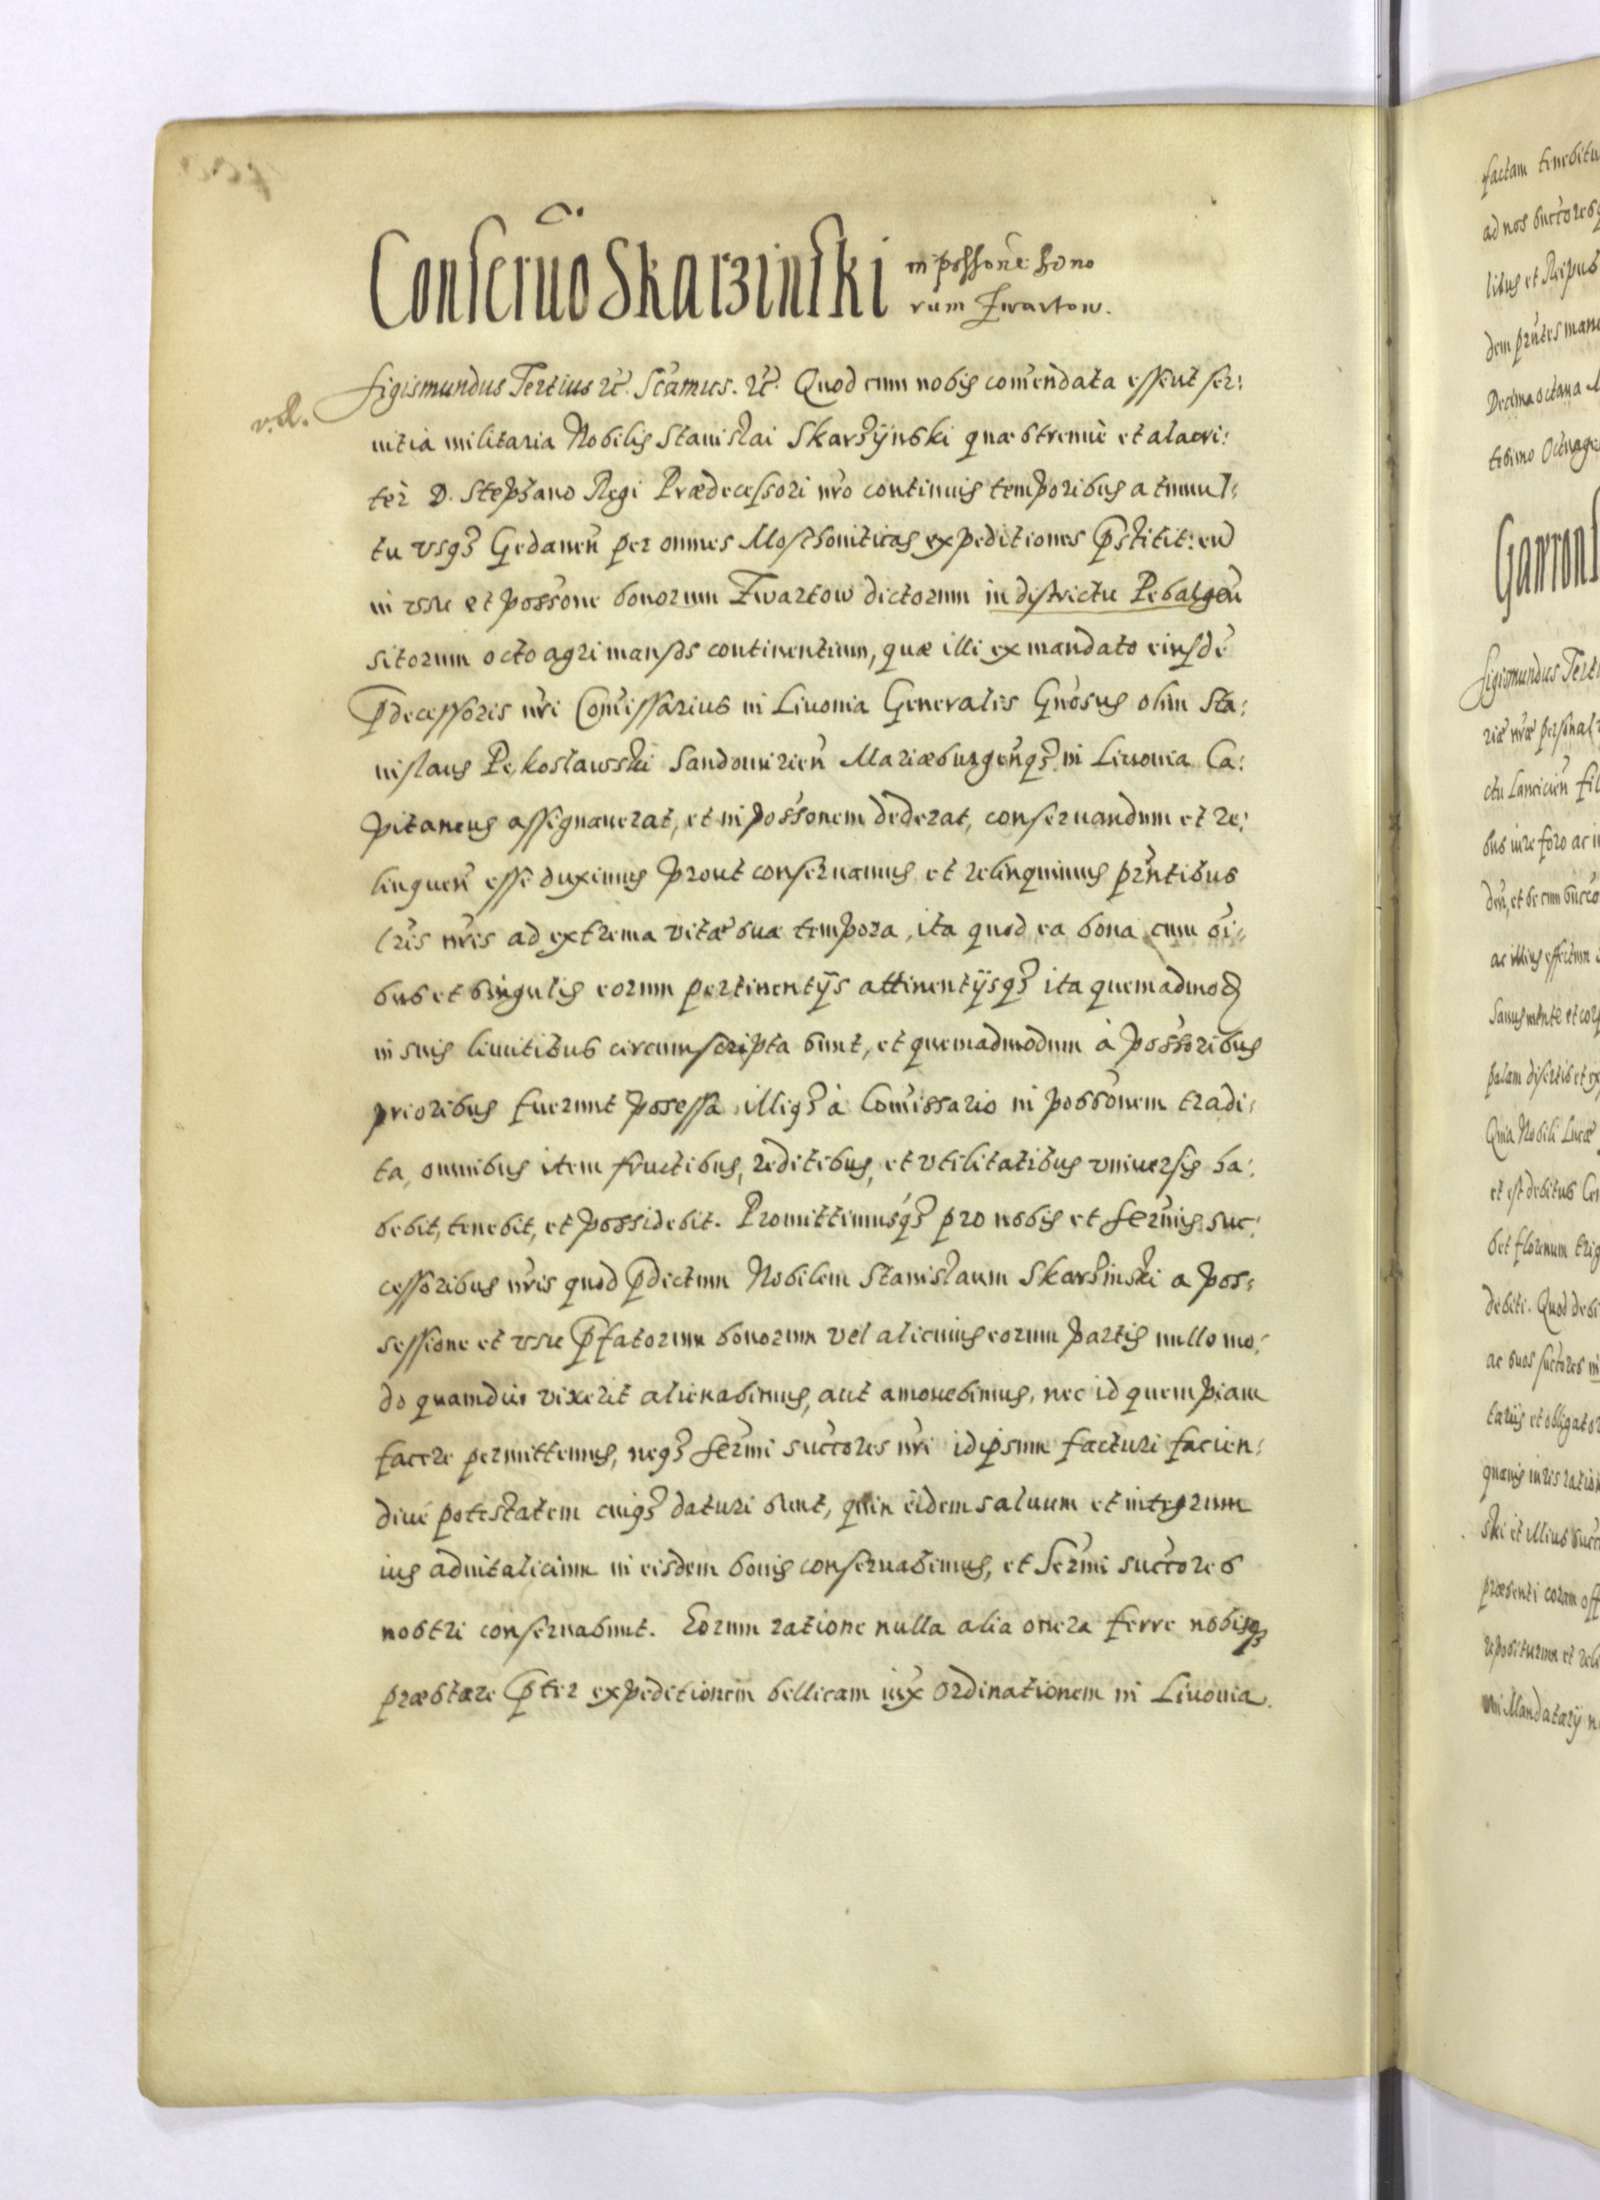 Conserũo Skarzinski in possõne bono
rum Zwartow.
Sigismundus Tertius rč. Scãmus. rč. Quod cum nobis comẽndata essent ser:
v. R.
uitia militaria Nobilis Stanislai Skarżÿnski quæ strenuè et alacri:
tèr D. Stephano Regi Prædecessori nrõ continuis temporibus a tumul:
tu vsq3 Gedaneñ per omnes Moschouiticas expeditiones p̃stitit: eũ
in vsu et possõne bonorum Zwartow dictorum in districtu Pebalgeñ
sitorum octo agri mansos continentium, quæ illi ex mandato eiusdẽ
p̃decessoris nrĩ Com̃issarius in Liuonia Generalis Gnõsus olim Sta:
nislaus Pękoslawski Sandomirieñ Mariæburgeñq3 in Liuonia Ca:
pitaneus assignauerat, et in possõnem dederat, conseruandum et re:
linqueñ esse duximus prout conseruamus et relinquimus prñtibus
lrĩs nrĩs ad extrema vitæ suæ tempora, ita quod ea bona cum oĩ:
bus et singulis eorum pertinentijs attinentijsq3 ita quemadmod
in suis limitibus circumscripta sunt, et quemadmodum à possõribus
prioribus fuerunt posessa illiq3 à Com̃issario in possõnem tradi:
ta, omnibus item fructibus, reditibus, et vtilitatibus vniuersis ha:
bebit, tenebit, et possidebit. Promittimusq3 pro nobis et Sermĩs suc:
cessoribus nrĩs quod p̃dictum Nobilem Stanislaum Skarżinski a pos:
sessione et vsu p̃fatorum bonorum vel alicuius eorum partis nullo mo:
do quamdiu vixerit alienabimus, aut amouebimus, nec id quempiam
facere permittemus, neq3 Sermĩ succõres nrĩ idipsum facturi facien:
diué potestatem cuiq3 daturi sunt, quin eidem saluum et integrum
ius aduitalicium in eisdem bonis conseruabimus, et Sermĩ succõres
nostri conseruabunt. Eorum ratione nulla alia onera ferre nobisq3
præstare p̃ter expeditionem bellicam iux̃ ordinationem in Liuonia
factam tenebitu
ad nos succõresq
libus et Reipub
dem prñtes manu
Decima octaua M
tesimo Octuage
Gawrons
Sigismundus Terti
riæ nrẽ personal
ctu Lancicieñ fil
bus iure foro ac iu
deñ, et se cum succõ
ac illius effectum
Sanus mente et corp
palam disertis et ex
Quia Nobili Lucæ
et est debitus
bet florenum trig
debiti. Quod debi
ac suos succõres in
tarijs et obligator
quauis iuris ration
ski et illius succ
præsenti coram off
repositurum et reli
uni Mandatarij n